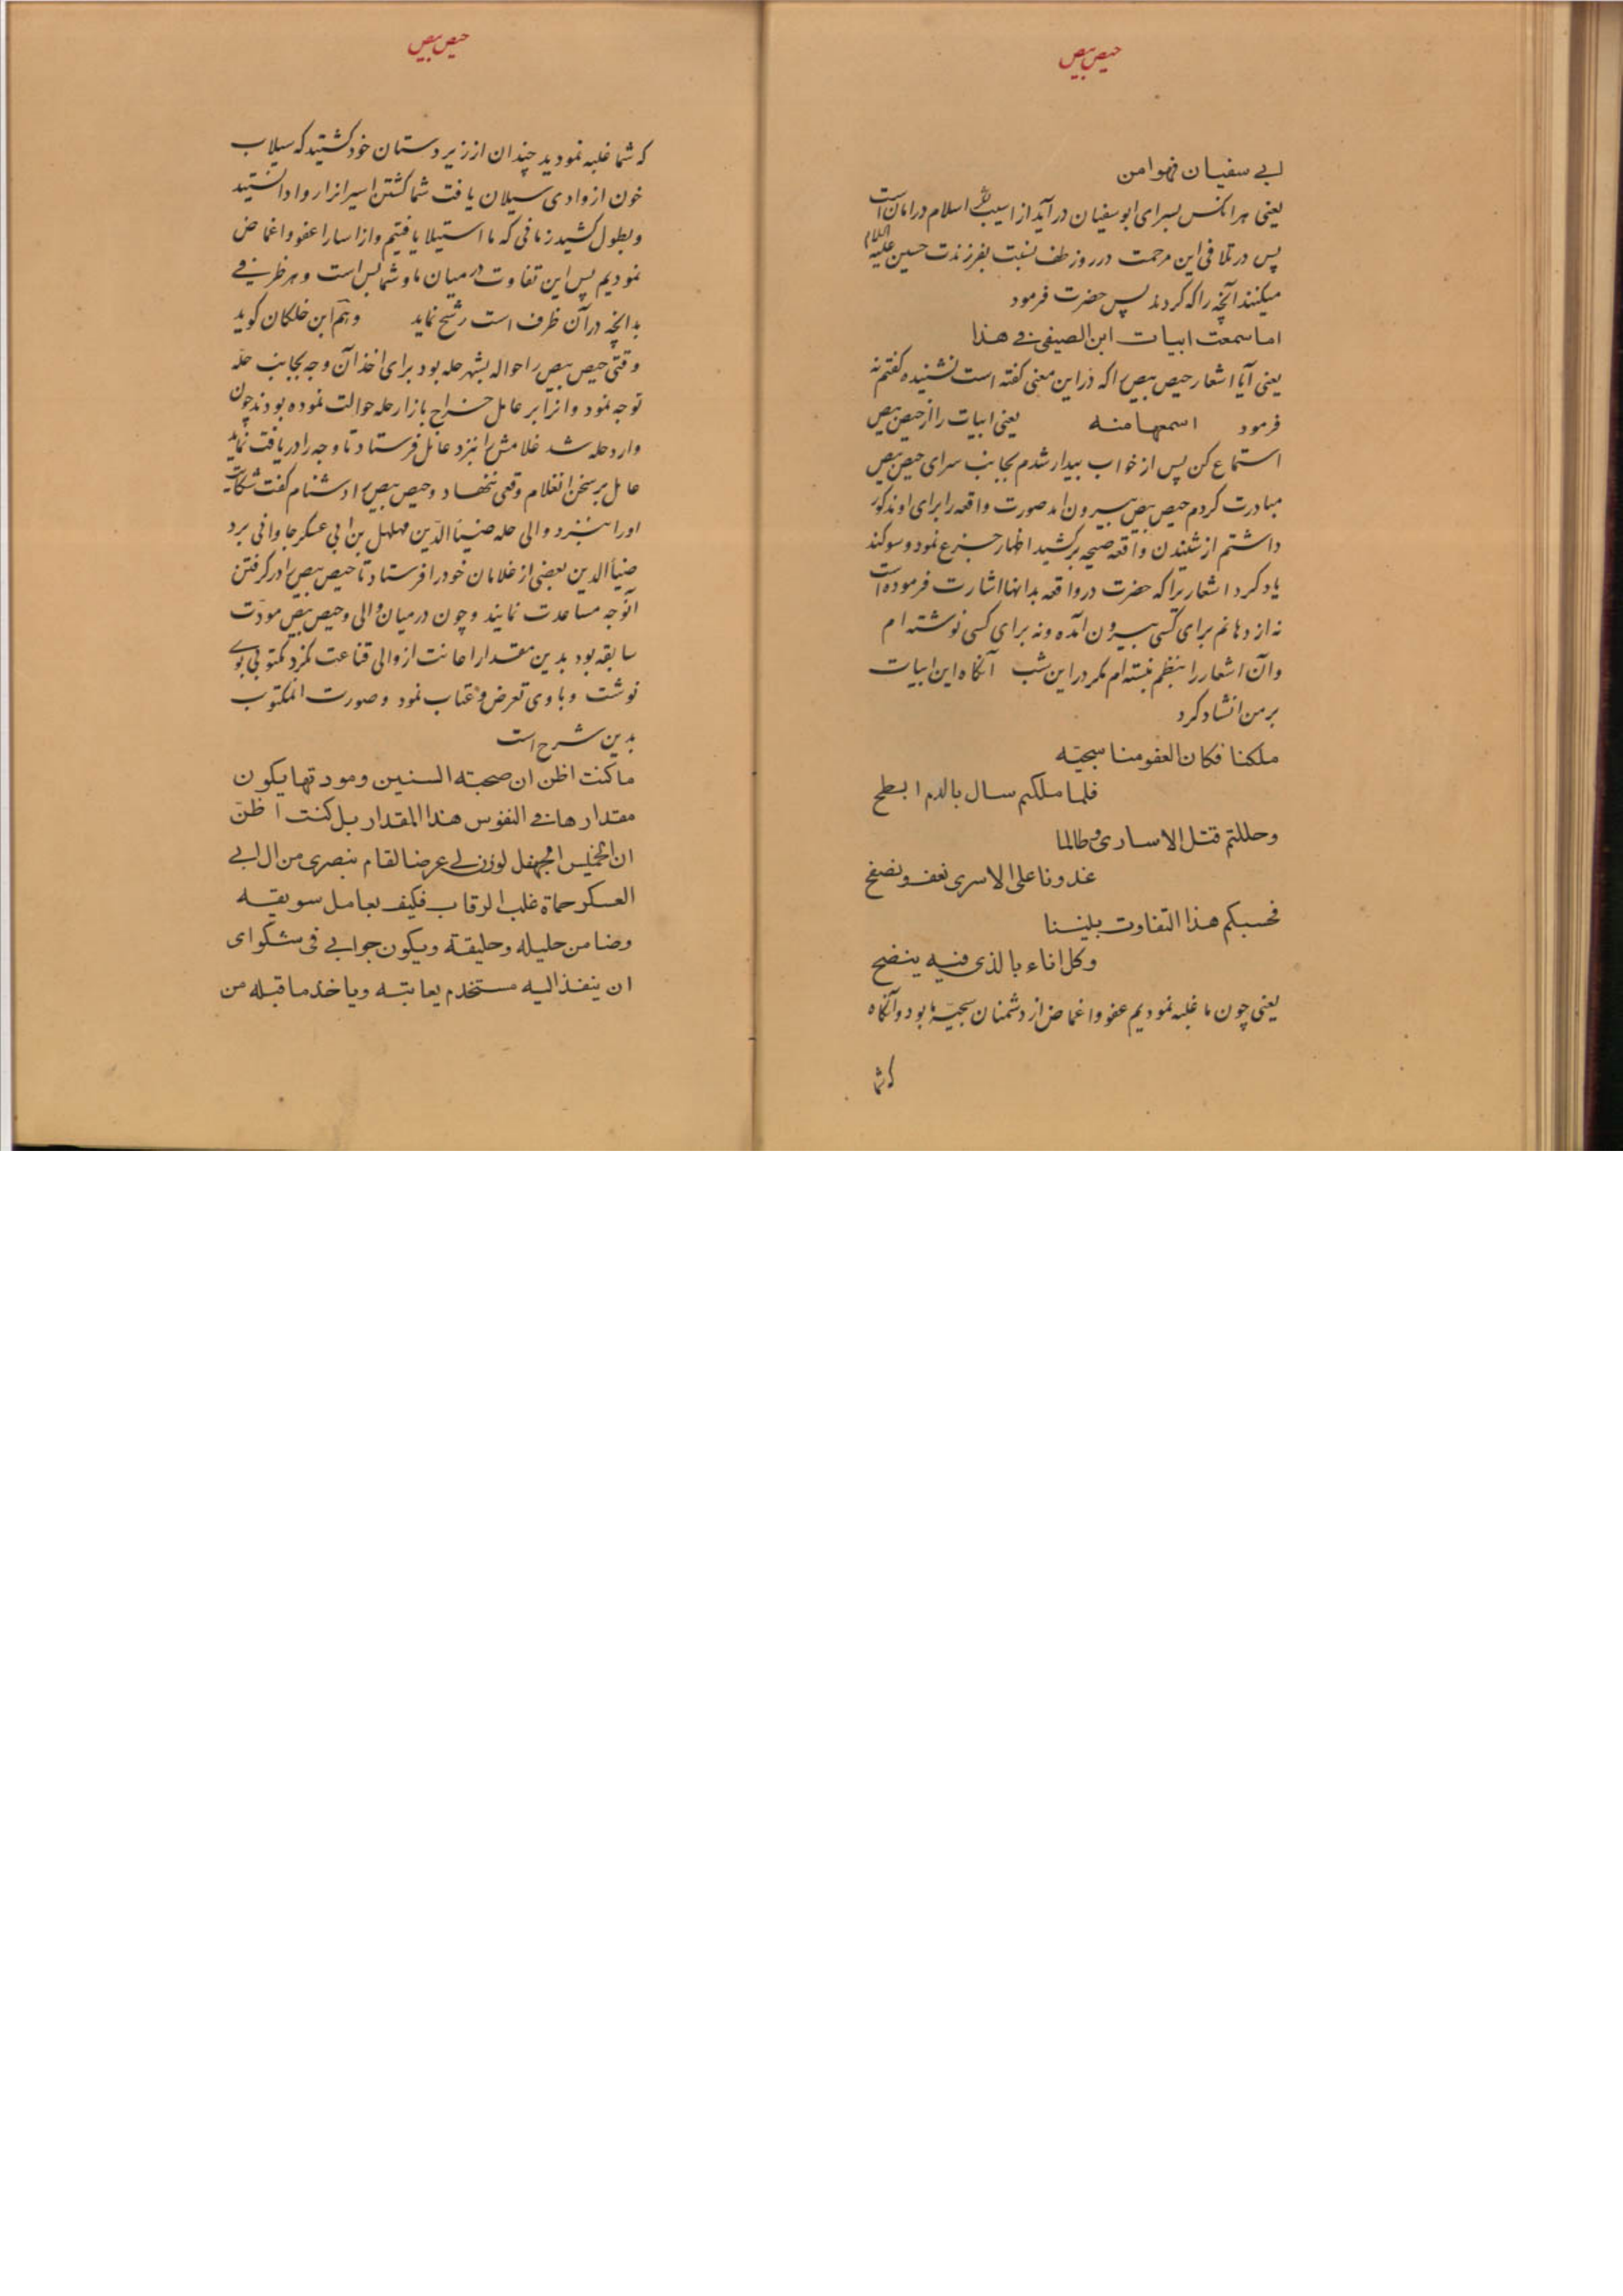 حیص بیص
ابی سفیان فهو امن
یعنی هر انکس بسرای ابو سفیان در آید از اسیب لشکر اسلام در امان است
پس در تلافی این مرحمت در روز طف نسبت بفرزندت حسین علیه السلام
میکنند آنچه را که کردند پس حضرت فرمود
اما سمعت ابیات ابن الصیفی فی هذا
یعنی آیا اشعار حیص بیص را که در این معنی گفته است نشنیده گفتم نه
فرمود اسمعها منه یعنی ابیات را از حیص بیص
استماع کن پس از خواب بیدار شدم بجانب سرای حیص بیص
مبادرت کردم حیص بیص بیرون امد صورت واقعه را برای او مذکور
داشتم از شنیدن واقعه صیحه برکشید اظهار جزع نمود و سوکند
یاد کرد اشعاریرا که حضرت در واقعه بدانها اشارت فرموده است
نه از دهانم برای کسی بیرون آمده و نه برای کسی نوشته ام
وآن اشعار را بنظم نبسته ام مکر در این شب آنکاه این ابیات
بر من انشاد کرد
ملکنا فکان العفو منا سجیّه
فلما ملکتم سال بالدم ابطح
وحللتم قتل الاساری وطالما
غدونا علی الاسری نعفو ونصفح
فحسبکم هذا التفاوت بیننا
وکل اناء بالذی فیه ینضح
یعنی چون ما غلبه نمودیم عفو و اغماض از دشمنان سجیّه ما بود و آنکاه
که شما
حیص بیص
که شما غلبه نمودید چندان از زیر دستان خود کشتید که سیلاب
خون از وادی سیلان یافت شما کشتن اسیرانرا روا دانستید
و بطول کشید زمانی که ما استیلا یافتیم و از اسارا عفو و اغماض
نمودیم پس این تفاوت در میان ما و شما بس است و هر ظرفی
بدانچه در آن ظرف است رشح نماید وهم ابن خلکان کوید
وقتی حیص بیص را حواله بشهر حله بود برای اخذ آن وجه بجانب حلّه
توجه نمود و انرا بر عامل خراج بازار حله حوالت نموده بودند چون
وارد حله شد غلامش را نزد عامل فرستاد تا وجه را دریافت نماید
عامل بر سخن انغلام وقعی ننهاد و حیص بیص را دشنام گفت شکایت
اورا بنزد والی حله ضیاء الدّین مهلهل بن ابی عسکر جاوانی برد
ضیاء الدین بعضی از غلامان خود را فرستاد تا حیص بیص را در کرفتن
آنوجه مساعدت نمایند و چون در میان والی و حیص بیص مودّت
سابقه بود بدین مقدار اعانت از والی قناعت نکرد مکتوبی بوی
نوشت و با وی تعرض و عتاب نمود و صورت انمکتوب
بدین شرح است
ما کنت اظن ان صحبته السنین ومودتها یکون
مقدارها فی النفوس هذا المقدار بل کنت اظنّ
ان الخمیس الجحفل لو زن لی عرضا لقام بنصری من ال ابی
العسکر حماة غلب الرقاب فکیف بعامل سویقه
وضامن حلیله وحلیقة ویکون جوابی فی شکوای
ان ینفذ الیه مستخدم یعاتبه ویاخذ ما قبله من